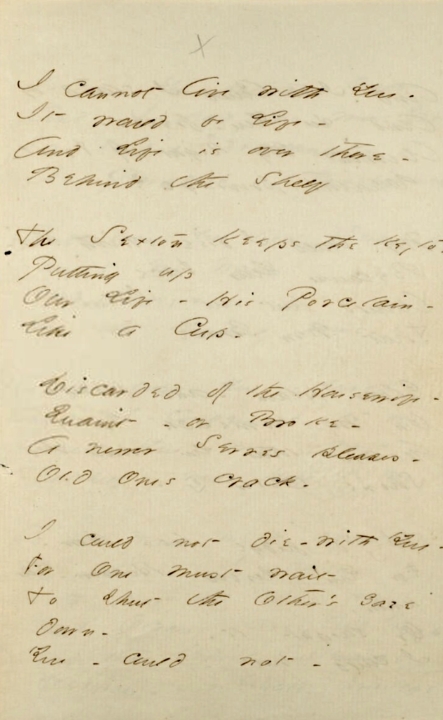 I cannot live with You -
It would be Life -
And Life is over there -
Behind the Shelf
The Sexton keeps the key to -
Putting up
Our Life - His Porcelain -
Like a Cup -
Discarded of the Housewife -
Quaint - or Broke -
A newer Sevres pleases -
Old Ones crack -
I could not die - with You -
For One must wait
To shut the Other's Gaze
down -
You - could not -